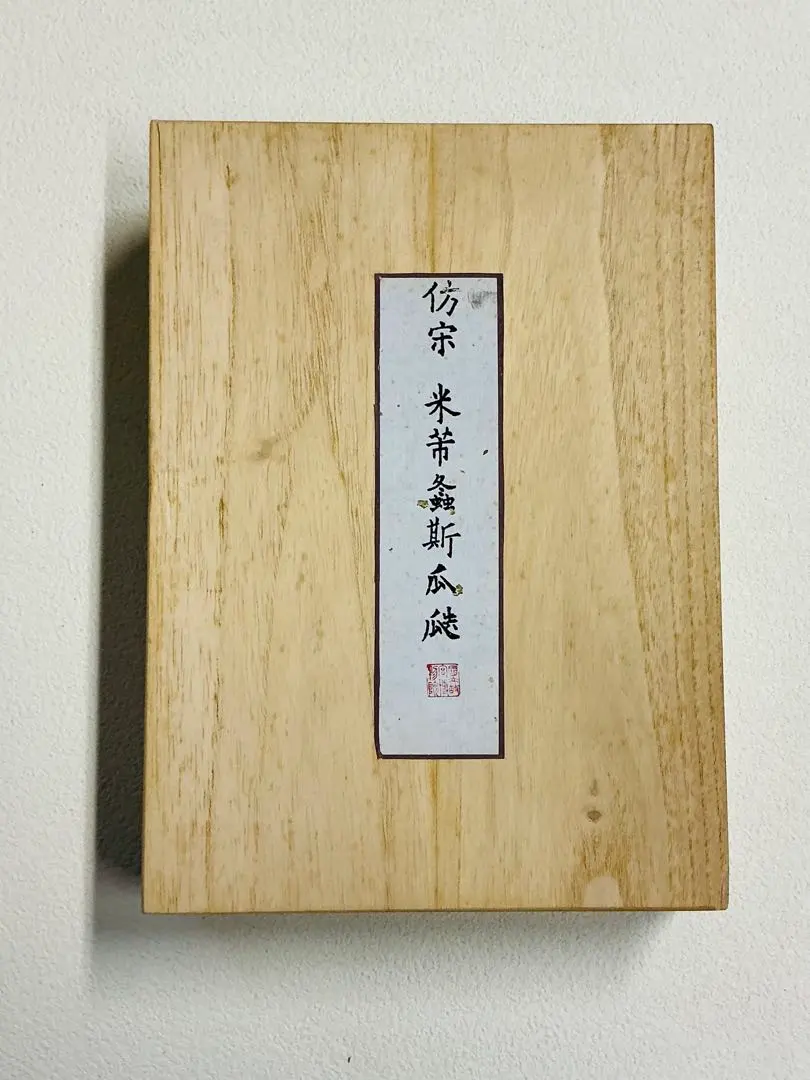 仿宋 米芾螽斯瓜瓞